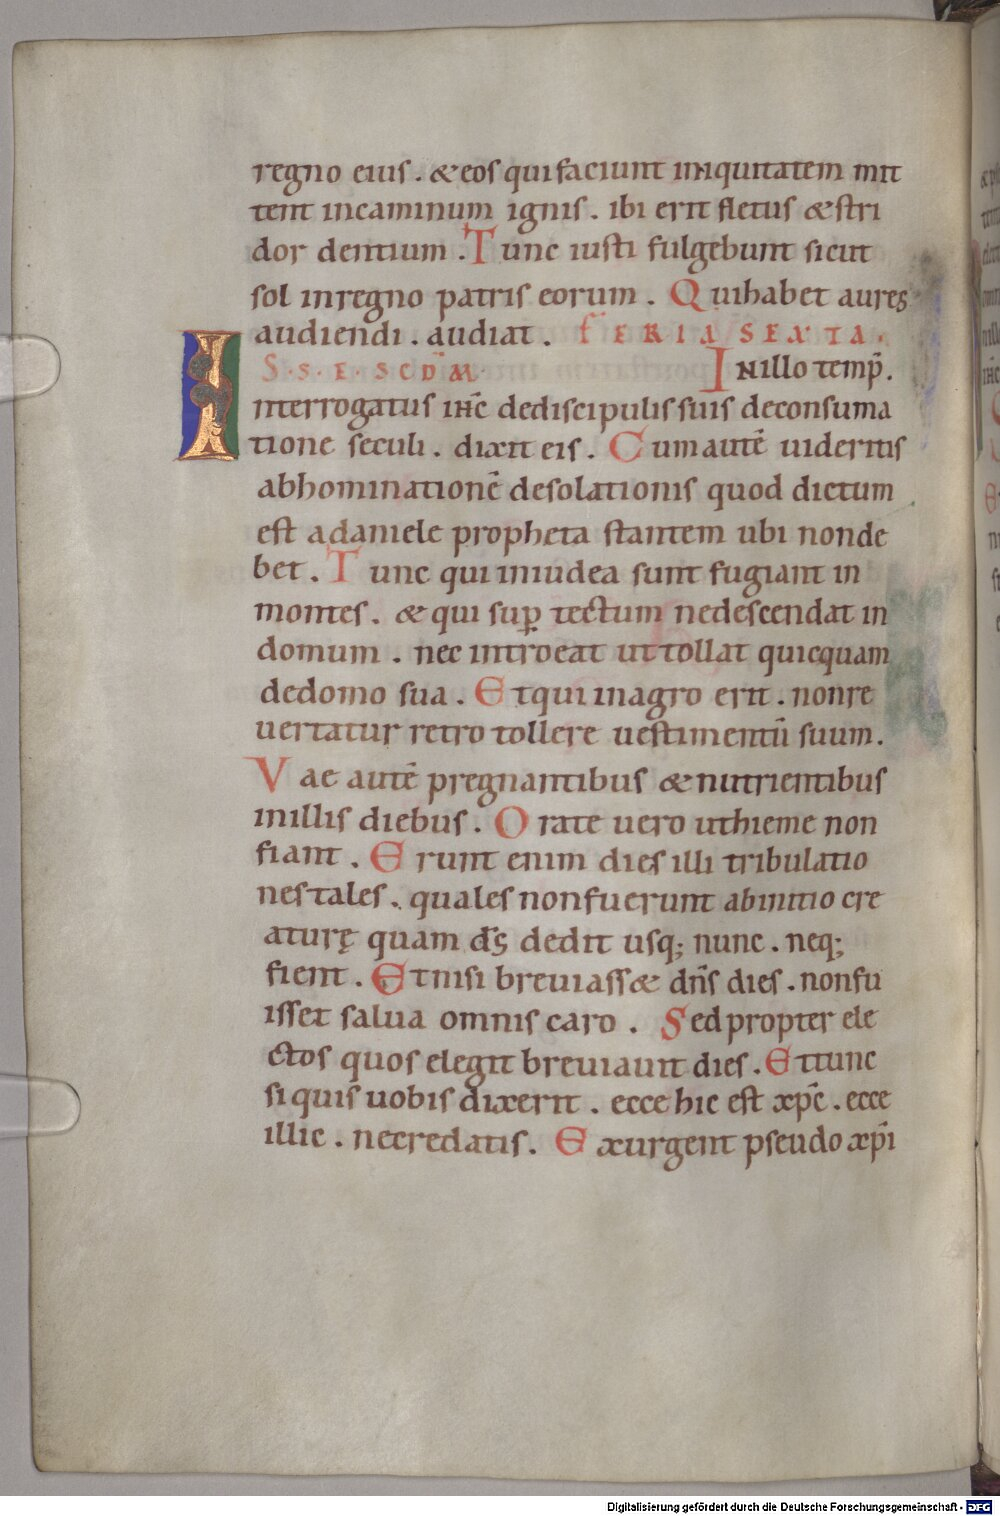 regno eius . & eos qui faciunt iniquitatem mit
tent incaminum ignis . ibi erit fletus & stri
dor dentium . Tunc iusti fulgebunt sicut
sol inregno patris eorum . Quihabet aures
audiendi . audiat . FERIA SEXTA .
S . S . E . SCDM
IN illo temp̄ .
Interrogatus ihc̄ dediscipulis suis deconsuma
tione seculi . dixit eis . Cum autē uideritis
abhominationē desolationis quod dictum
est adaniele propheta stantem ubi nonde
bet . Tunc qui iniudea sunt fugiant in
montes . & qui sup̱ tectum nedescendat in
domum . nec introeat ut tollat quicquam
dedomo sua . Et qui inagro erit . nonre
uertatur retro tollere uestimentū suum .
Vae autē pregnantibus & nutrientibus
inillis diebus . Orate uero uthieme non
fiant . Erunt enim dies illi tribulatio
nes tales . quales nonfuerunt abinitio cre
aturę quam ds̄ dedit usq; nunc . neq;
fient . Et nisi breuiass& dn̄s dies . nonfu
isset salua omnis caro . Sed propter ele
ctos quos elegit breuiauit dies . Et tunc
si quis uobis dixerit . ecce hic est xpc̄ . ecce
illic . necredatis . Exurgent pseudo xp̄i
Digitalisierung gefördert durch die Deutsche Forschungsgemeinschaft - DFG